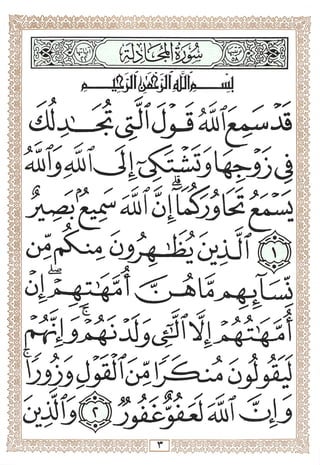 سُورَةُ المُجَادلَة
بِسْمِ ٱللَّهِ ٱلرَّحْمَٰنِ ٱلرَّحِيمِ
قَدْ سَمِعَ ٱللَّهُ قَوْلَ ٱلَّتِى تُجَٰدِلُكَ
فِى زَوْجِهَا وَتَشْتَكِىٓ إِلَى ٱللَّهِ وَٱللَّهُ
يَسْمَعُ تَحَاوُرَكُمَآ ۚ إِنَّ ٱللَّهَ سَمِيعٌۢ بَصِيرٌ
١ ٱلَّذِينَ يُظَٰهِرُونَ مِنكُم مِّن
نِّسَآئِهِم مَّا هُنَّ أُمَّهَٰتِهِمْ ۖ إِنْ
أُمَّهَٰتُهُمْ إِلَّا ٱلَّٰٓـِٔى وَلَدْنَهُمْ ۚ وَإِنَّهُمْ
لَيَقُولُونَ مُنكَرًا مِّنَ ٱلْقَوْلِ وَزُورًا ۚ
وَإِنَّ ٱللَّهَ لَعَفُوٌّ غَفُورٌ ٢ وَٱلَّذِينَ
٣